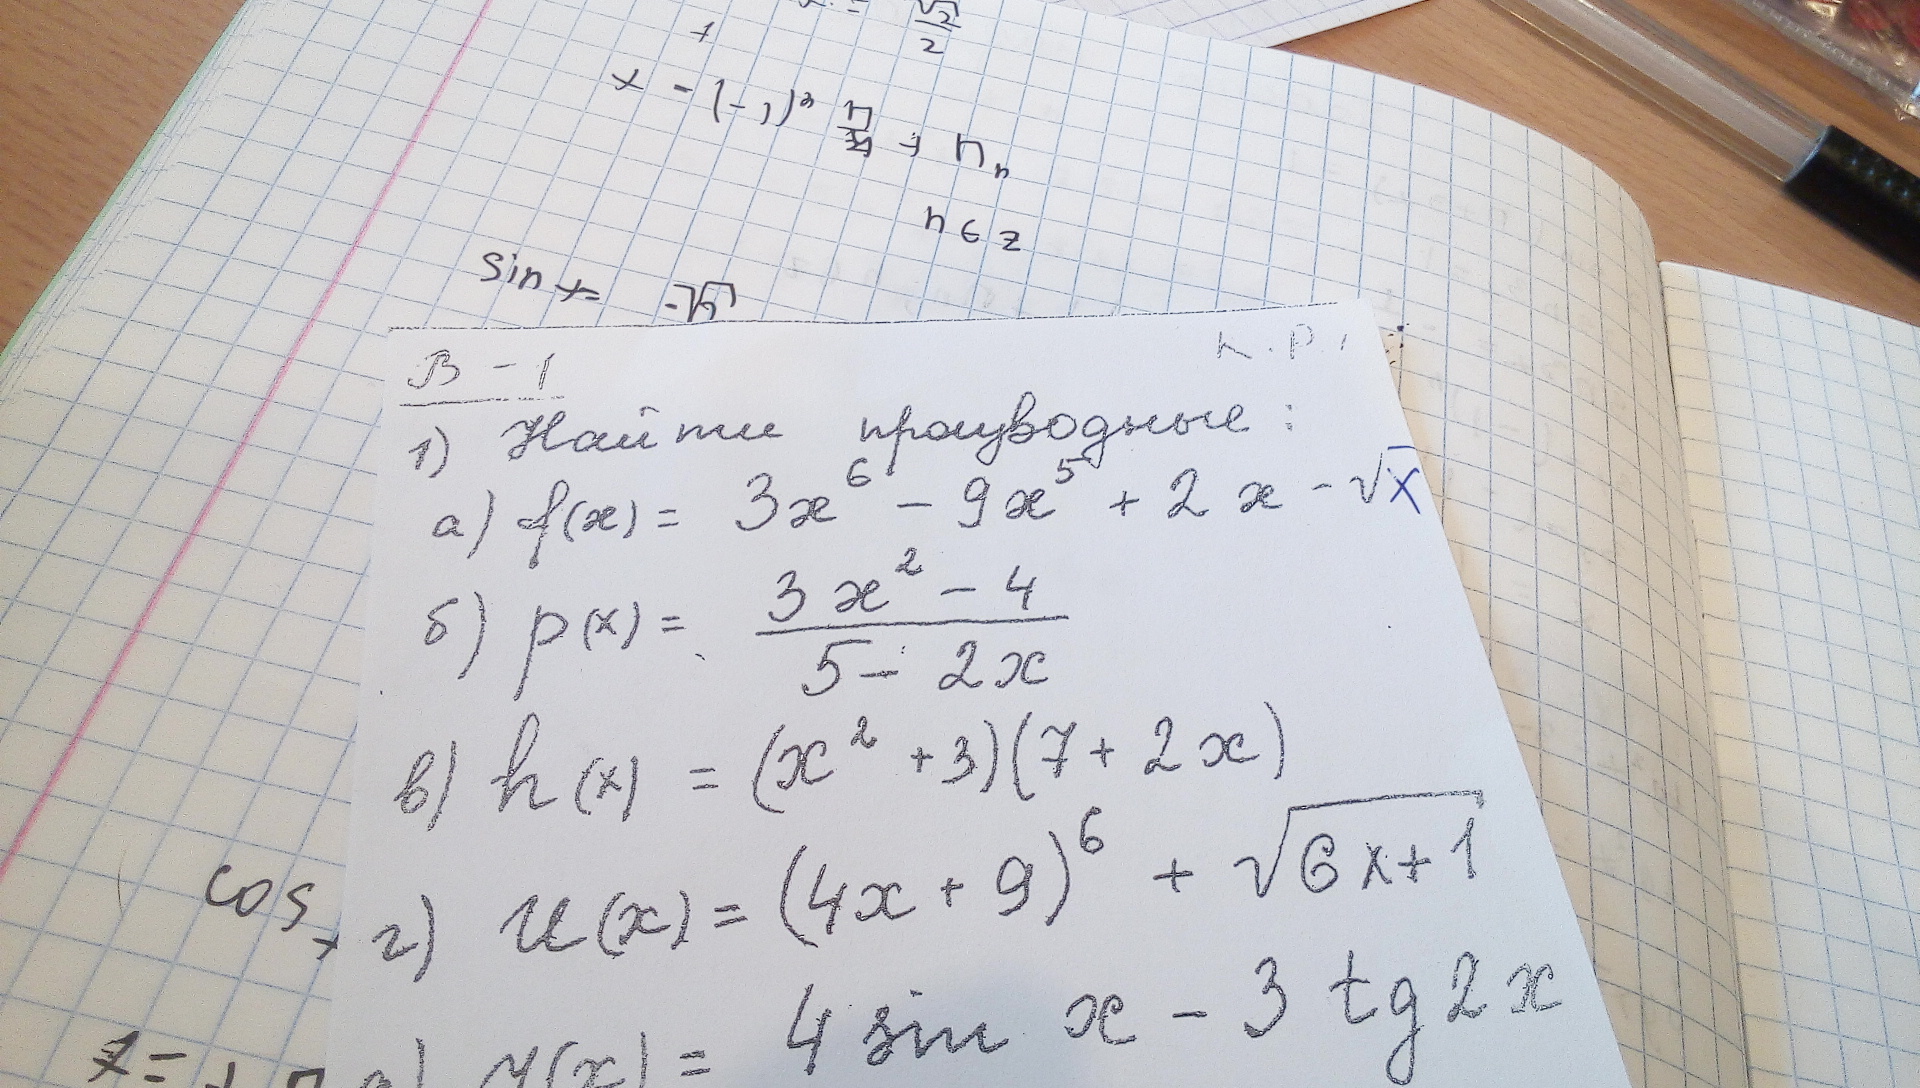 √2/2
x = (-1)ⁿ π/4 + πn
n ∈ z
sin x = -√2
В - 1
К.Р.
1) Найти производные:
а) f(x) = 3x⁶ - 9x⁵ + 2x - √x
б) p(x) = (3x² - 4)/(5 - 2x)
в) h(x) = (x² + 3)(7 + 2x)
г) u(x) = (4x + 9)⁶ + √(6x+1)
4 sin x - 3 tg 2x
cos x
x = +